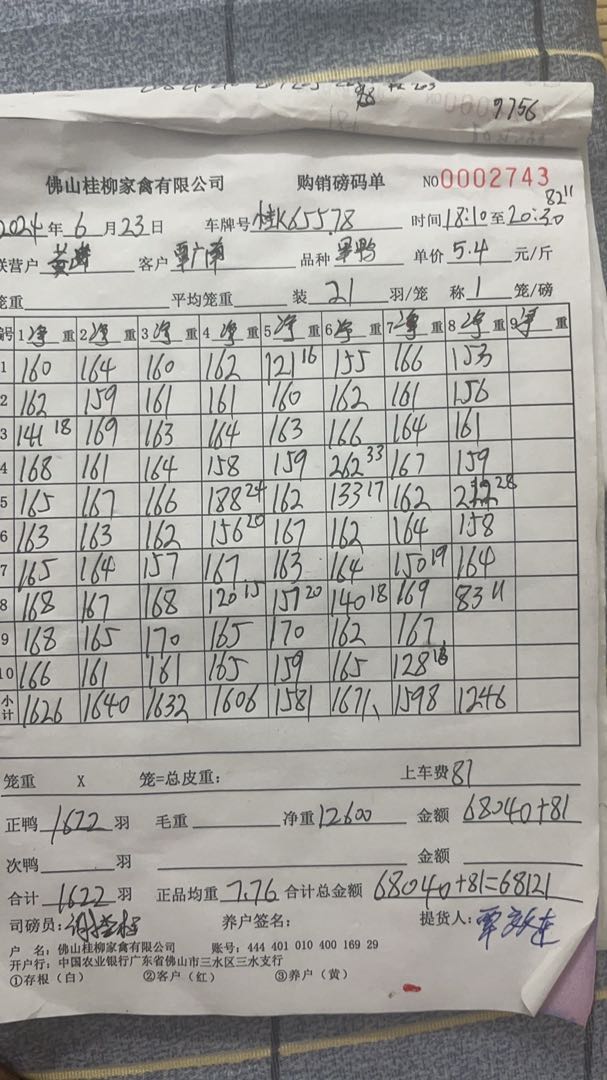 9756
佛山桂柳家禽有限公司 购销磅码单 NO 0002743
82 11
2024 年 6 月 23 日 车牌号 桂K65578 时间 18:10 至 20:30
联营户 黄 客户 覃广南 品种 鸭 单价 5.4 元/斤
笼重 平均笼重 装 21 羽/笼 称 1 笼/磅
号 1净重 2净重 3净重 4净重 5净重 6净重 7净重 8净重 9净重
1 160 164 160 162 121 16 155 166 153
2 162 159 161 161 160 162 161 156
3 141 18 169 163 164 163 166 164 161
4 168 161 164 158 159 262 33 167 159
5 165 167 166 188 24 162 133 17 162 28
6 163 163 162 156 20 167 162 164 158
7 165 164 157 167 163 164 150 19 164
8 168 167 168 120 15 157 20 140 18 169 83 11
9 168 165 170 165 170 162 167
10 166 161 161 165 159 165 128
小计 1626 1640 1632 1606 1581 1671 1598 1246
笼重 X 笼=总皮重: 上车费 81
正鸭 1622 羽 毛重 净重 12600 金额 68040+81
次鸭 羽 金额
合计 1622 羽 正品均重 7.76 合计总金额 68040+81=68121
司磅员: 养户签名: 提货人: 覃
户 名: 佛山桂柳家禽有限公司 账号: 444 401 010 400 169 29
开户行: 中国农业银行广东省佛山市三水区三水支行
①存根（白） ②客户（红） ③养户（黄）